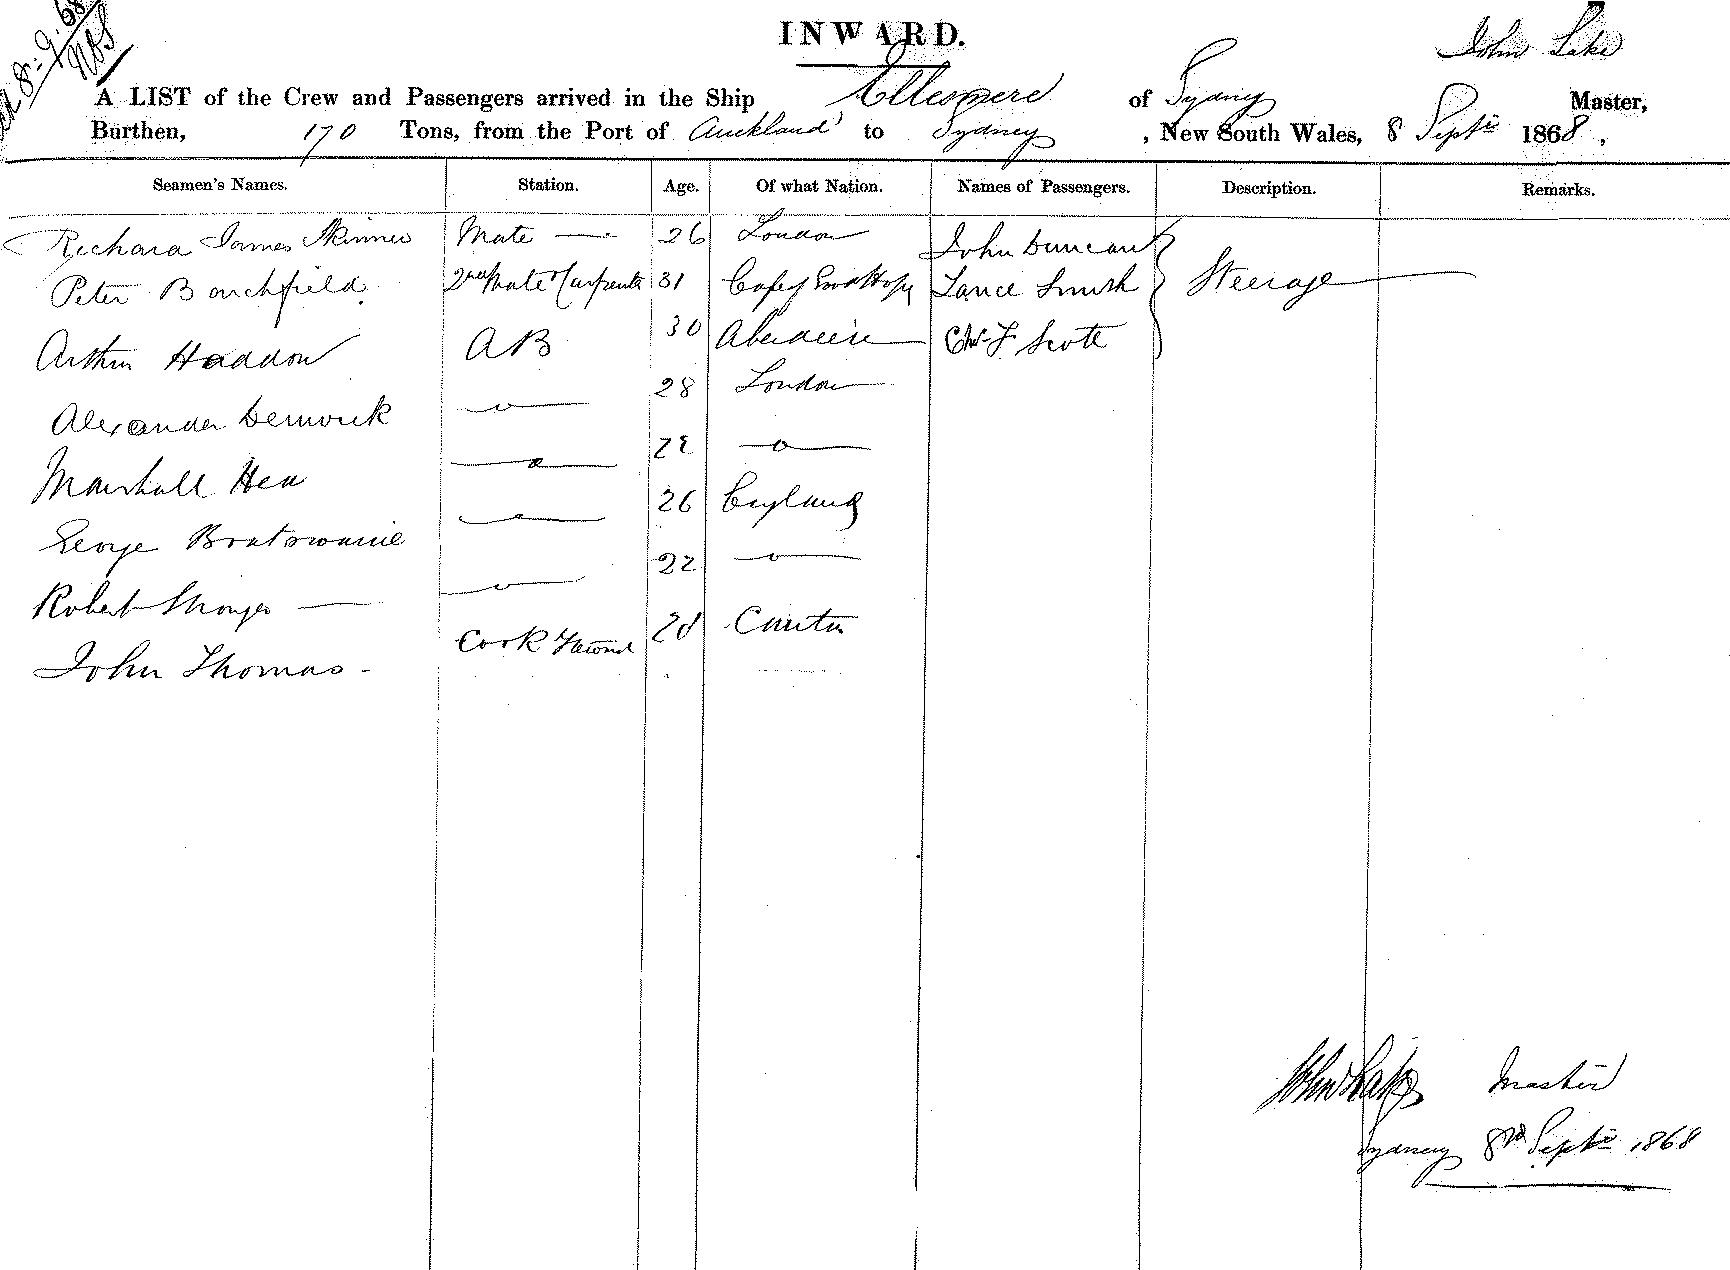 8-9.68
INWARD.
John Lake
A LIST of the Crew and Passengers arrived in the Ship Ellesmere of Sydney Master,
Burthen, 170 Tons, from the Port of Auckland to Sydney , New South Wales, 8 Septr 1868 .
Seamen's Names. Station. Age. Of what Nation. Names of Passengers. Description. Remarks.
Richard James Skinner Mate 26 London John Duncan
Peter 2nd Mate & Carpenter 31 Cape of Good Hope Lance Smith Steerage
Arthur Haddon AB 30 Aberdeen Scott
Alexander 28 London
Marshall 22 —o—
George 26 England
Robert 22 —o—
John Thomas - Cook 28
John Lake Master
Sydney 8th Septr 1868